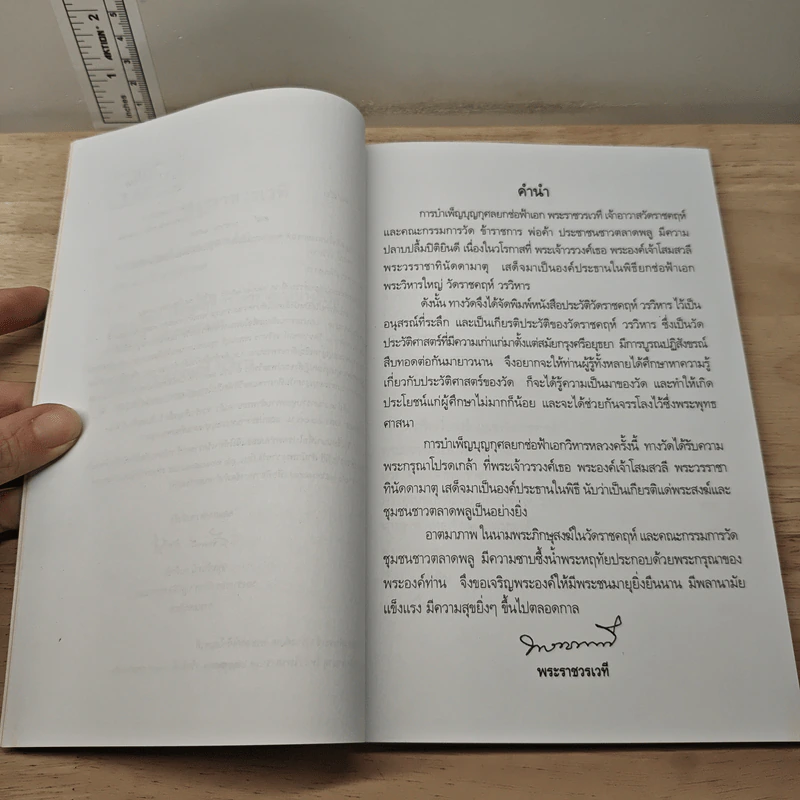 inches
1
2
AKTION
3
4
5
คำนำ
การบำเพ็ญบุญกุศลยกช่อฟ้าเอก พระราชวรเวที เจ้าอาวาสวัดราชคฤห์
และคณะกรรมการวัด ข้าราชการ พ่อค้า ประชาชนชาวตลาดพลู มีความ
ปลาบปลื้มปิติยินดี เนื่องในวโรกาสที่ พระเจ้าวรวงศ์เธอ พระองค์เจ้าโสมสวลี
พระวรราชาทินัดดามาตุ เสด็จมาเป็นองค์ประธานในพิธียกช่อฟ้าเอก
พระวิหารใหญ่ วัดราชคฤห์ วรวิหาร
ดังนั้น ทางวัดจึงได้จัดพิมพ์หนังสือประวัติวัดราชคฤห์ วรวิหาร ไว้เป็น
อนุสรณ์ที่ระลึก และเป็นเกียรติประวัติของวัดราชคฤห์ วรวิหาร ซึ่งเป็นวัด
ประวัติศาสตร์ที่มีความเก่าแก่มาตั้งแต่สมัยกรุงศรีอยุธยา มีการบูรณปฏิสังขรณ์
สืบทอดต่อกันมายาวนาน จึงอยากจะให้ท่านผู้รู้ทั้งหลายได้ศึกษาหาความรู้
เกี่ยวกับประวัติศาสตร์ของวัด ก็จะได้รู้ความเป็นมาของวัด และทำให้เกิด
ประโยชน์แก่ผู้ศึกษาไม่มากก็น้อย และจะได้ช่วยกันจรรโลงไว้ซึ่งพระพุทธ
ศาสนา
การบำเพ็ญบุญกุศลยกช่อฟ้าเอกวิหารหลวงครั้งนี้ ทางวัดได้รับความ
พระกรุณาโปรดเกล้า ที่พระเจ้าวรวงศ์เธอ พระองค์เจ้าโสมสวลี พระวรราชา
ทินัดดามาตุ เสด็จมาเป็นองค์ประธานในพิธี นับว่าเป็นเกียรติแด่พระสงฆ์และ
ชุมชนชาวตลาดพลูเป็นอย่างยิ่ง
อาตมาภาพ ในนามพระภิกษุสงฆ์ในวัดราชคฤห์ และคณะกรรมการวัด
ชุมชนชาวตลาดพลู มีความซาบซึ้งน้ำพระหฤทัยประกอบด้วยพระกรุณาของ
พระองค์ท่าน จึงขอเจริญพระองค์ให้มีพระชนมายุยิ่งยืนนาน มีพลานามัย
แข็งแรง มีความสุขยิ่งๆ ขึ้นไปตลอดกาล
พระราชวรเวที